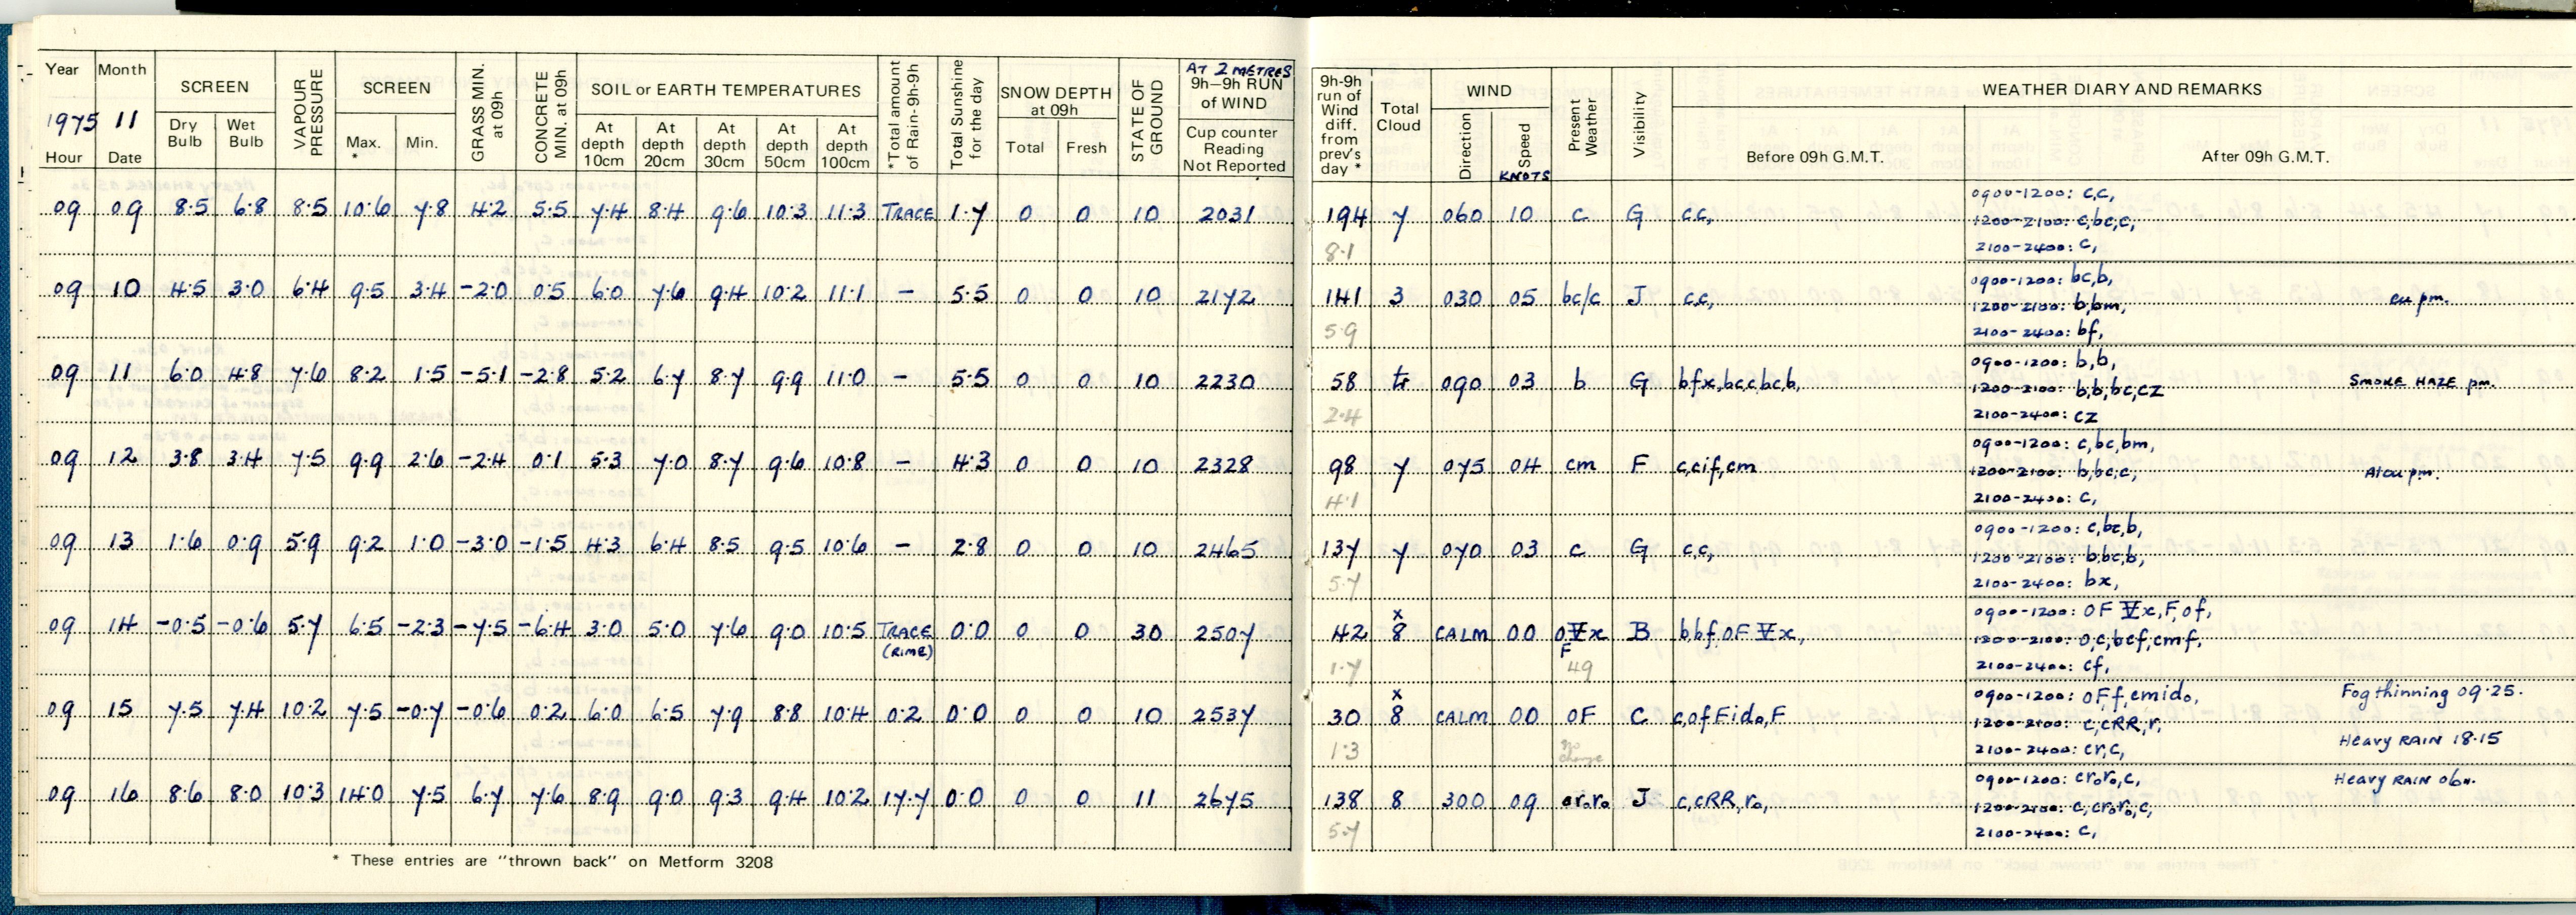 Year Month SCREEN VAPOUR PRESSURE SCREEN GRASS MIN. at 09h CONCRETE MIN. at 09h SOIL or EARTH TEMPERATURES *Total amount of Rain-9h-9h Total Sunshine for the day SNOW DEPTH at 09h STATE OF GROUND AT 2 METRES 9h–9h RUN of WIND 9h-9h run of Wind diff. from prev's day * Total Cloud WIND Present Weather Visibility WEATHER DIARY AND REMARKS
1975 11 Dry Bulb Wet Bulb Max. * Min. At depth 10cm At depth 20cm At depth 30cm At depth 50cm At depth 100cm Total Fresh Cup counter Reading Not Reported Direction Speed KNOTS Before 09h G.M.T. After 09h G.M.T.
Hour Date
09 09 8.5 6.8 8.5 10.6 7.8 4.2 5.5 7.4 8.4 9.6 10.3 11.3 TRACE 1.7 0 0 10 2031 194 7 060 10 c G c,c, 0900-1200: c,c,
1200-2100: c,bc,c,
8.1 2100-2400: c,
09 10 4.5 3.0 6.4 9.5 3.4 -2.0 0.5 6.0 7.6 9.4 10.2 11.1 – 5.5 0 0 10 2172 141 3 030 05 bc/c J c,c, 0900-1200: bc,b,
1200-2100: b,bm, cu pm.
5.9 2100-2400: bf,
09 11 6.0 4.8 7.6 8.2 1.5 -5.1 -2.8 5.2 6.7 8.7 9.9 11.0 – 5.5 0 0 10 2230 58 tr 090 03 b G bfx,bc,c,bc,b, 0900-1200: b,b,
1200-2100: b,b,bc,cz SMOKE HAZE pm.
2.4 2100-2400: cz
09 12 3.8 3.4 7.5 9.9 2.6 -2.4 0.1 5.3 7.0 8.7 9.6 10.8 – 4.3 0 0 10 2328 98 7 075 04 cm F c,cif,cm 0900-1200: c,bc,bm,
1200-2100: b,bc,c, Alcu pm.
4.1 2100-2400: c,
09 13 1.6 0.9 5.9 9.2 1.0 -3.0 -1.5 4.3 6.4 8.5 9.5 10.6 – 2.8 0 0 10 2465 137 7 070 03 c G c,c, 0900-1200: c,bc,b,
1200-2100: b,bc,b,
5.7 2100-2400: bx,
09 14 -0.5 -0.6 5.7 6.5 -2.3 -7.5 -6.4 3.0 5.0 7.6 9.0 10.5 TRACE (RIME) 0.0 0 0 30 2507 42 x 8 CALM 00 oVx F B b,bf,oFVx, 0900-1200: oFVx,F,of,
1200-2100: o,c,bcf,cmf,
1.7 49 2100-2400: cf,
09 15 7.5 7.4 10.2 7.5 -0.7 -0.6 0.2 6.0 6.5 7.9 8.8 10.4 0.2 0.0 0 0 10 2537 30 x 8 CALM 00 oF C c,ofFido,F 0900-1200: oF,f,cmido, Fog thinning 09.25.
1200-2100: c,cRR,r,
1.3 no change 2100-2400: cr,c, Heavy RAIN 18.15
09 16 8.6 8.0 10.3 14.0 7.5 6.7 7.6 8.9 9.0 9.3 9.4 10.2 17.7 0.0 0 0 11 2675 138 8 300 09 croro J c,cRR,ro, 0900-1200: croro,c, Heavy RAIN 06h.
1200-2100: c,croro,c,
5.7 2100-2400: c,
* These entries are "thrown back" on Metform 3208